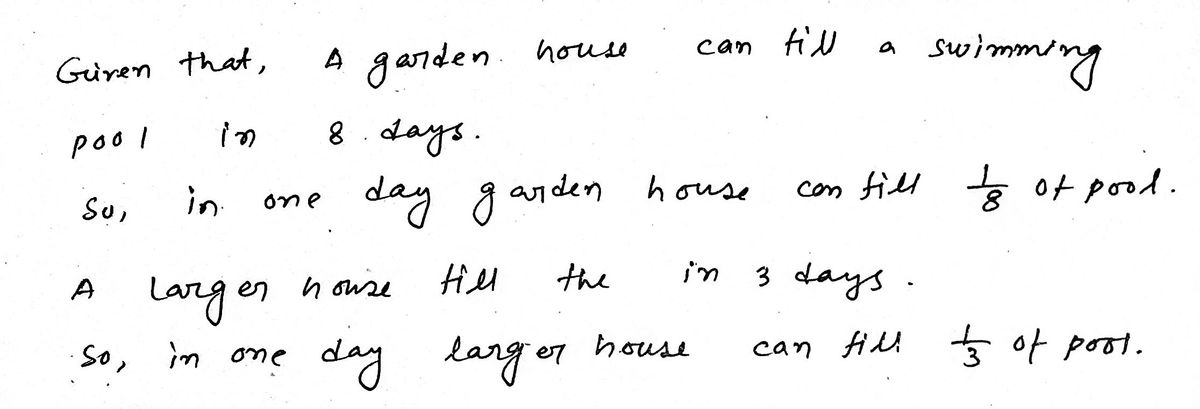 Given that, A garden house can fill a swimming
pool in 8 days.
So, in one day garden house can fill 1/8 of pool.
A larger house fill the in 3 days.
So, in one day larger house can fill 1/3 of pool.